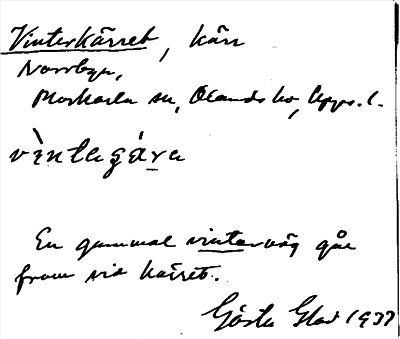 Vinterkärret, kärr
Norrbyn,
Morkarla sn, Olands hd, Upps. l.
vìntagárə
En gammal vinterväg går
fram vid kärret.
Gösta Glad 1937